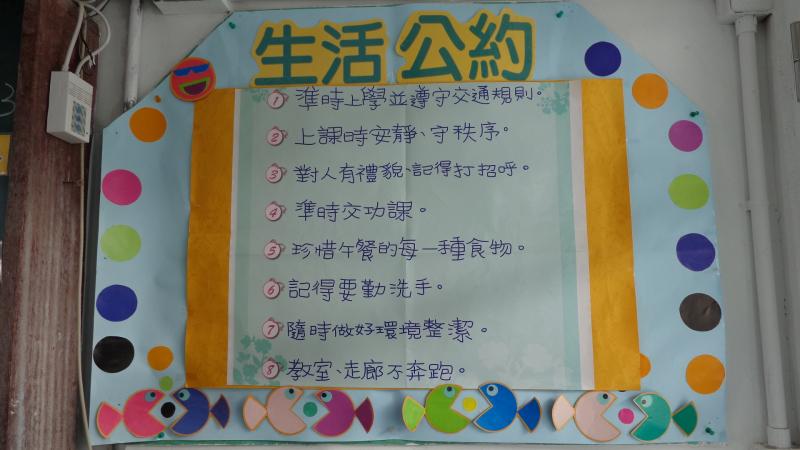 生活公約
1 準時上學並遵守交通規則。
2 上課時安靜、守秩序。
3 對人有禮貌、記得打招呼。
4 準時交功課。
5 珍惜午餐的每一種食物。
6 記得要勤洗手。
7 隨時做好環境整潔。
8 教室、走廊不奔跑。